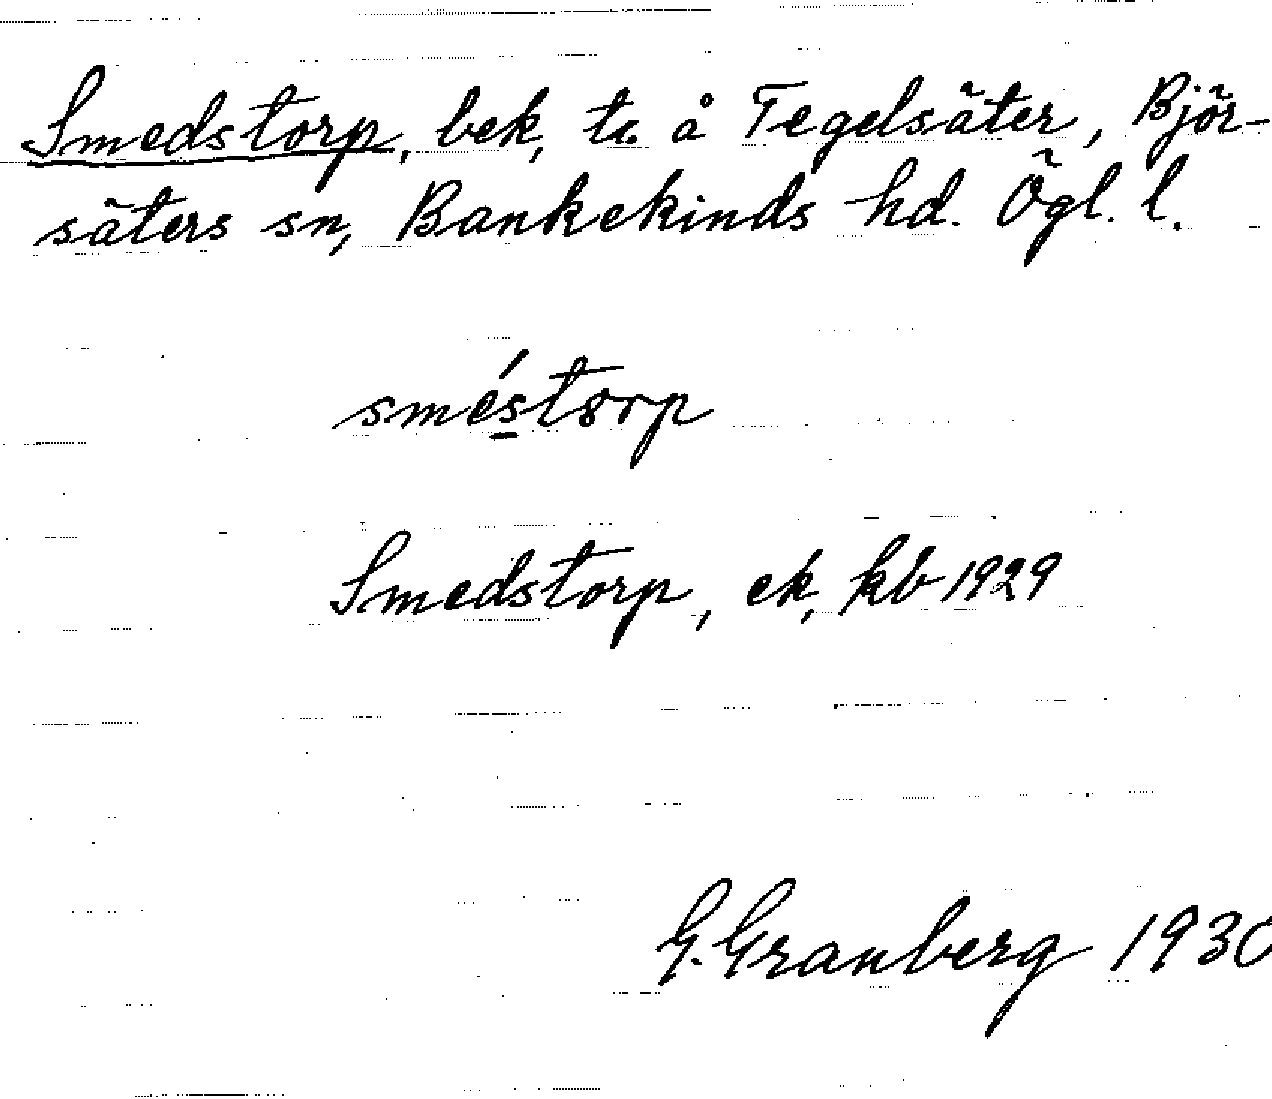 Smedstorp, bek, te. å Tegelsäter, Björ-
säters sn, Bankekinds hd. Ögl. l.
sméstorp
Smedstorp, ek, kb 1929
G. Granberg 1930